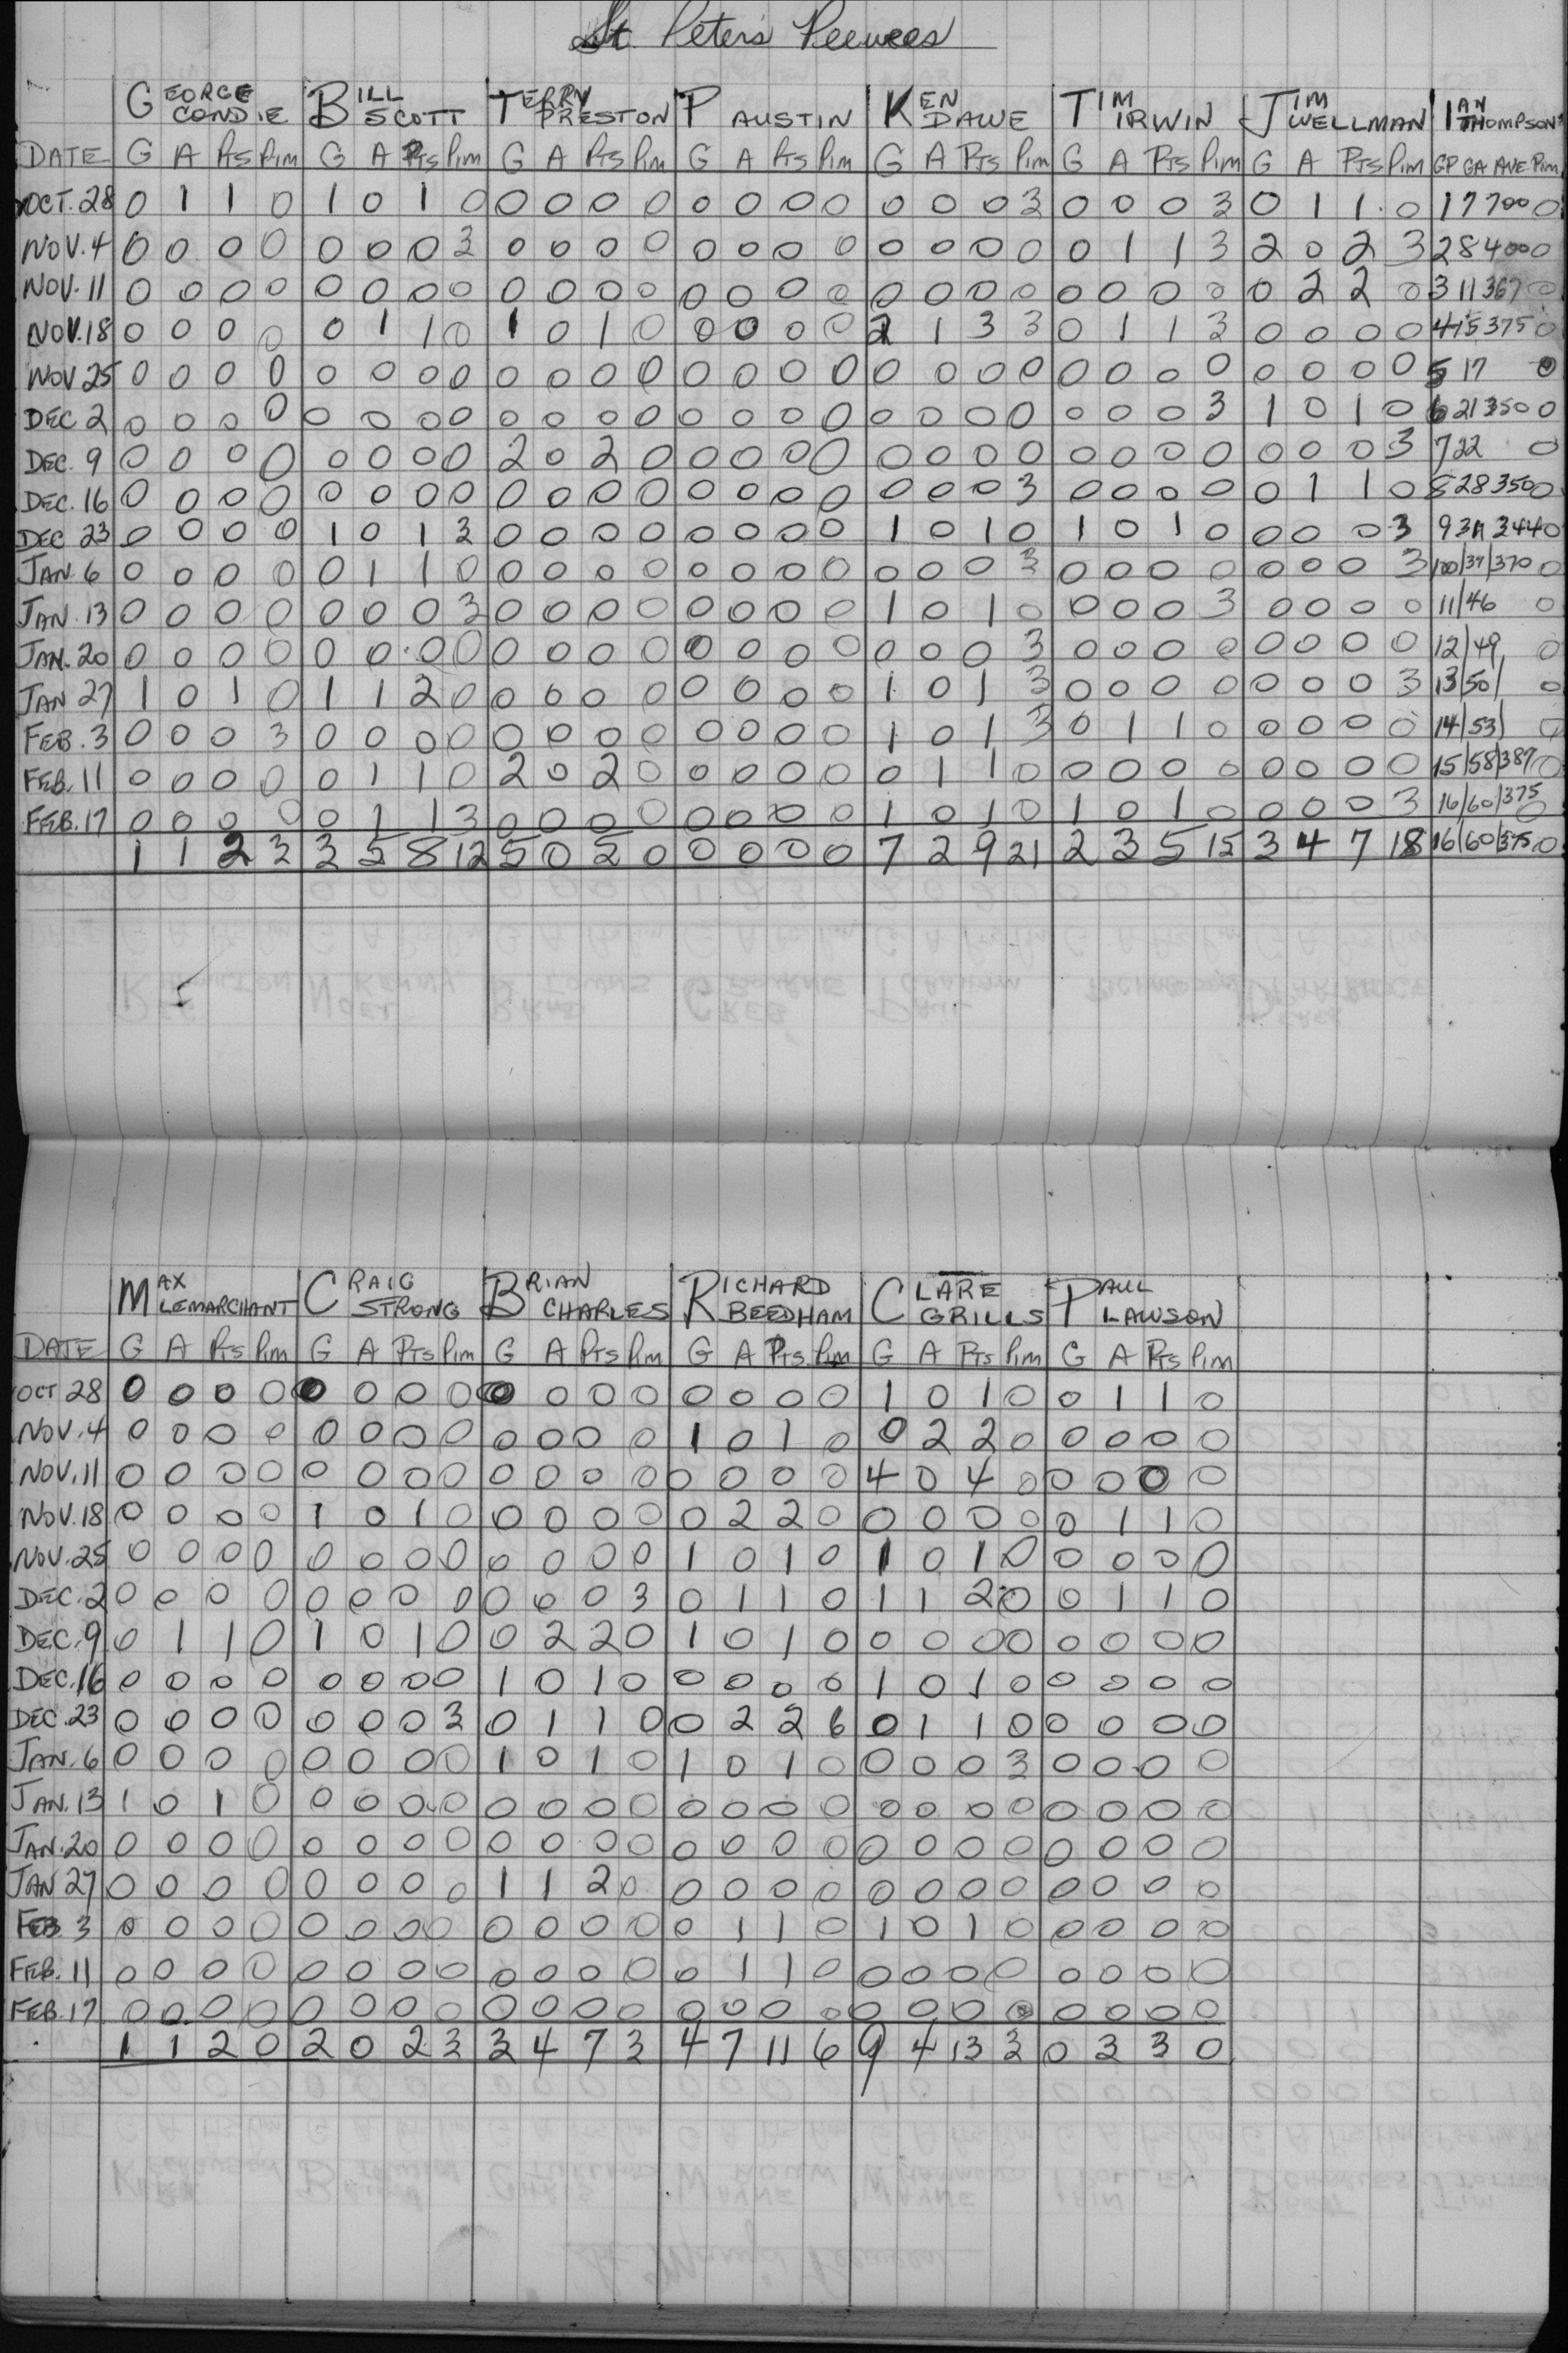 St. Peter's Peewees
GEORGE CONDIE BILL SCOTT TERRY PRESTON P AUSTIN KEN DAWE TIM IRWIN JIM WELLMAN IAN THOMPSON
DATE G A Pts Pim G A Pts Pim G A Pts Pim G A Pts Pim G A Pts Pim G A Pts Pim G A Pts Pim GP GA AVE Pim
OCT. 28 0 1 1 0 1 0 1 0 0 0 0 0 0 0 0 0 0 0 0 3 0 0 0 3 0 1 1 0 1 7 700 0
NOV. 4 0 0 0 0 0 0 0 3 0 0 0 0 0 0 0 0 0 0 0 0 0 1 1 3 2 0 2 3 2 8 400 0
NOV. 11 0 0 0 0 0 0 0 0 0 0 0 0 0 0 0 0 0 0 0 0 0 0 0 0 0 2 2 0 3 11 367 0
NOV. 18 0 0 0 0 0 1 1 0 1 0 1 0 0 0 0 0 2 1 3 3 0 1 1 3 0 0 0 0 4 15 375 0
NOV 25 0 0 0 0 0 0 0 0 0 0 0 0 0 0 0 0 0 0 0 0 0 0 0 0 0 0 0 0 5 17 0
DEC 2 0 0 0 0 0 0 0 0 0 0 0 0 0 0 0 0 0 0 0 0 0 0 0 3 1 0 1 0 6 21 350 0
DEC. 9 0 0 0 0 0 0 0 0 2 0 2 0 0 0 0 0 0 0 0 0 0 0 0 0 0 0 0 3 7 22 0
DEC. 16 0 0 0 0 0 0 0 0 0 0 0 0 0 0 0 0 0 0 0 3 0 0 0 0 0 1 1 0 8 28 350 0
DEC 23 0 0 0 0 1 0 1 3 0 0 0 0 0 0 0 0 1 0 1 0 1 0 1 0 0 0 0 3 9 31 344 0
JAN. 6 0 0 0 0 0 1 1 0 0 0 0 0 0 0 0 0 0 0 0 3 0 0 0 0 0 0 0 3 10/37/370 0
JAN. 13 0 0 0 0 0 0 0 3 0 0 0 0 0 0 0 0 1 0 1 0 0 0 0 3 0 0 0 0 11/46 0
JAN. 20 0 0 0 0 0 0 0 0 0 0 0 0 0 0 0 0 0 0 0 3 0 0 0 0 0 0 0 0 12/49 0
JAN 27 1 0 1 0 1 1 2 0 0 0 0 0 0 0 0 0 1 0 1 3 0 0 0 0 0 0 0 3 13/50/ 0
FEB. 3 0 0 0 3 0 0 0 0 0 0 0 0 0 0 0 0 1 0 1 3 0 1 1 0 0 0 0 0 14/53/ 0
FEB. 11 0 0 0 0 0 1 1 0 2 0 2 0 0 0 0 0 0 1 1 0 0 0 0 0 0 0 0 0 15/58/387 0
FEB. 17 0 0 0 0 0 1 1 3 0 0 0 0 0 0 0 0 1 0 1 0 1 0 1 0 0 0 0 3 16/60/375 0
1 1 2 3 3 5 8 12 5 0 5 0 0 0 0 0 7 2 9 21 2 3 5 15 3 4 7 18 16/60/375 0
MAX LEMARCHANT CRAIG STRONG BRIAN CHARLES RICHARD BEEDHAM CLARE GRILLS PAUL LAWSON
DATE G A Pts Pim G A Pts Pim G A Pts Pim G A Pts Pim G A Pts Pim G A Pts Pim
OCT 28 0 0 0 0 0 0 0 0 0 0 0 0 0 0 0 0 1 0 1 0 0 1 1 0
NOV. 4 0 0 0 0 0 0 0 0 0 0 0 0 1 0 1 0 0 2 2 0 0 0 0 0
NOV. 11 0 0 0 0 0 0 0 0 0 0 0 0 0 0 0 0 4 0 4 0 0 0 0 0
NOV. 18 0 0 0 0 1 0 1 0 0 0 0 0 0 2 2 0 0 0 0 0 0 1 1 0
NOV. 25 0 0 0 0 0 0 0 0 0 0 0 0 1 0 1 0 1 0 1 0 0 0 0 0
DEC. 2 0 0 0 0 0 0 0 0 0 0 0 3 0 1 1 0 1 1 2 0 0 1 1 0
DEC. 9 0 1 1 0 1 0 1 0 0 2 2 0 1 0 1 0 0 0 0 0 0 0 0 0
DEC. 16 0 0 0 0 0 0 0 0 1 0 1 0 0 0 0 0 1 0 1 0 0 0 0 0
DEC. 23 0 0 0 0 0 0 0 3 0 1 1 0 0 2 2 6 0 1 1 0 0 0 0 0
JAN. 6 0 0 0 0 0 0 0 0 1 0 1 0 1 0 1 0 0 0 0 3 0 0 0 0
JAN. 13 1 0 1 0 0 0 0 0 0 0 0 0 0 0 0 0 0 0 0 0 0 0 0 0
JAN. 20 0 0 0 0 0 0 0 0 0 0 0 0 0 0 0 0 0 0 0 0 0 0 0 0
JAN 27 0 0 0 0 0 0 0 0 1 1 2 0 0 0 0 0 0 0 0 0 0 0 0 0
FEB 3 0 0 0 0 0 0 0 0 0 0 0 0 0 1 1 0 1 0 1 0 0 0 0 0
FEB. 11 0 0 0 0 0 0 0 0 0 0 0 0 0 1 1 0 0 0 0 0 0 0 0 0
FEB. 17 0 0 0 0 0 0 0 0 0 0 0 0 0 0 0 0 0 0 0 0 0 0 0 0
1 1 2 0 2 0 2 3 3 4 7 3 4 7 11 6 9 4 13 3 0 3 3 0